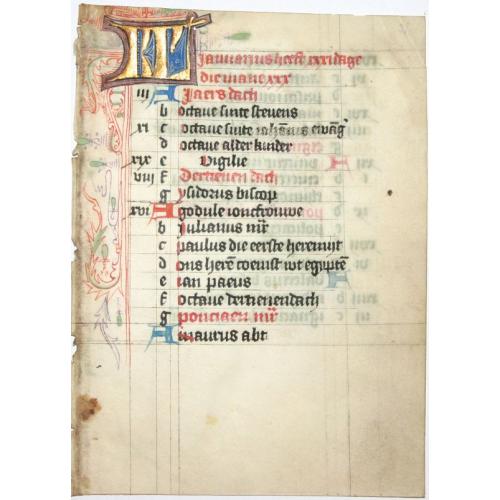 KL Januarius heeft xxxi dage
die mane xxx
iii A Jaers dach
b octave sinte stevens
xi c octave sinte iohannis ewang
d octave alder kinder
xix e Vigilie
viii f Dertienen dach
g ysidorus biscop
xvi A godule ioncfrouwe
b iulianus mr
c paulus die eerste heremijt
d ons here coemt wt egypte
e ian paeus
f octave dertienendach
g ponciaen mr
A maurus abt